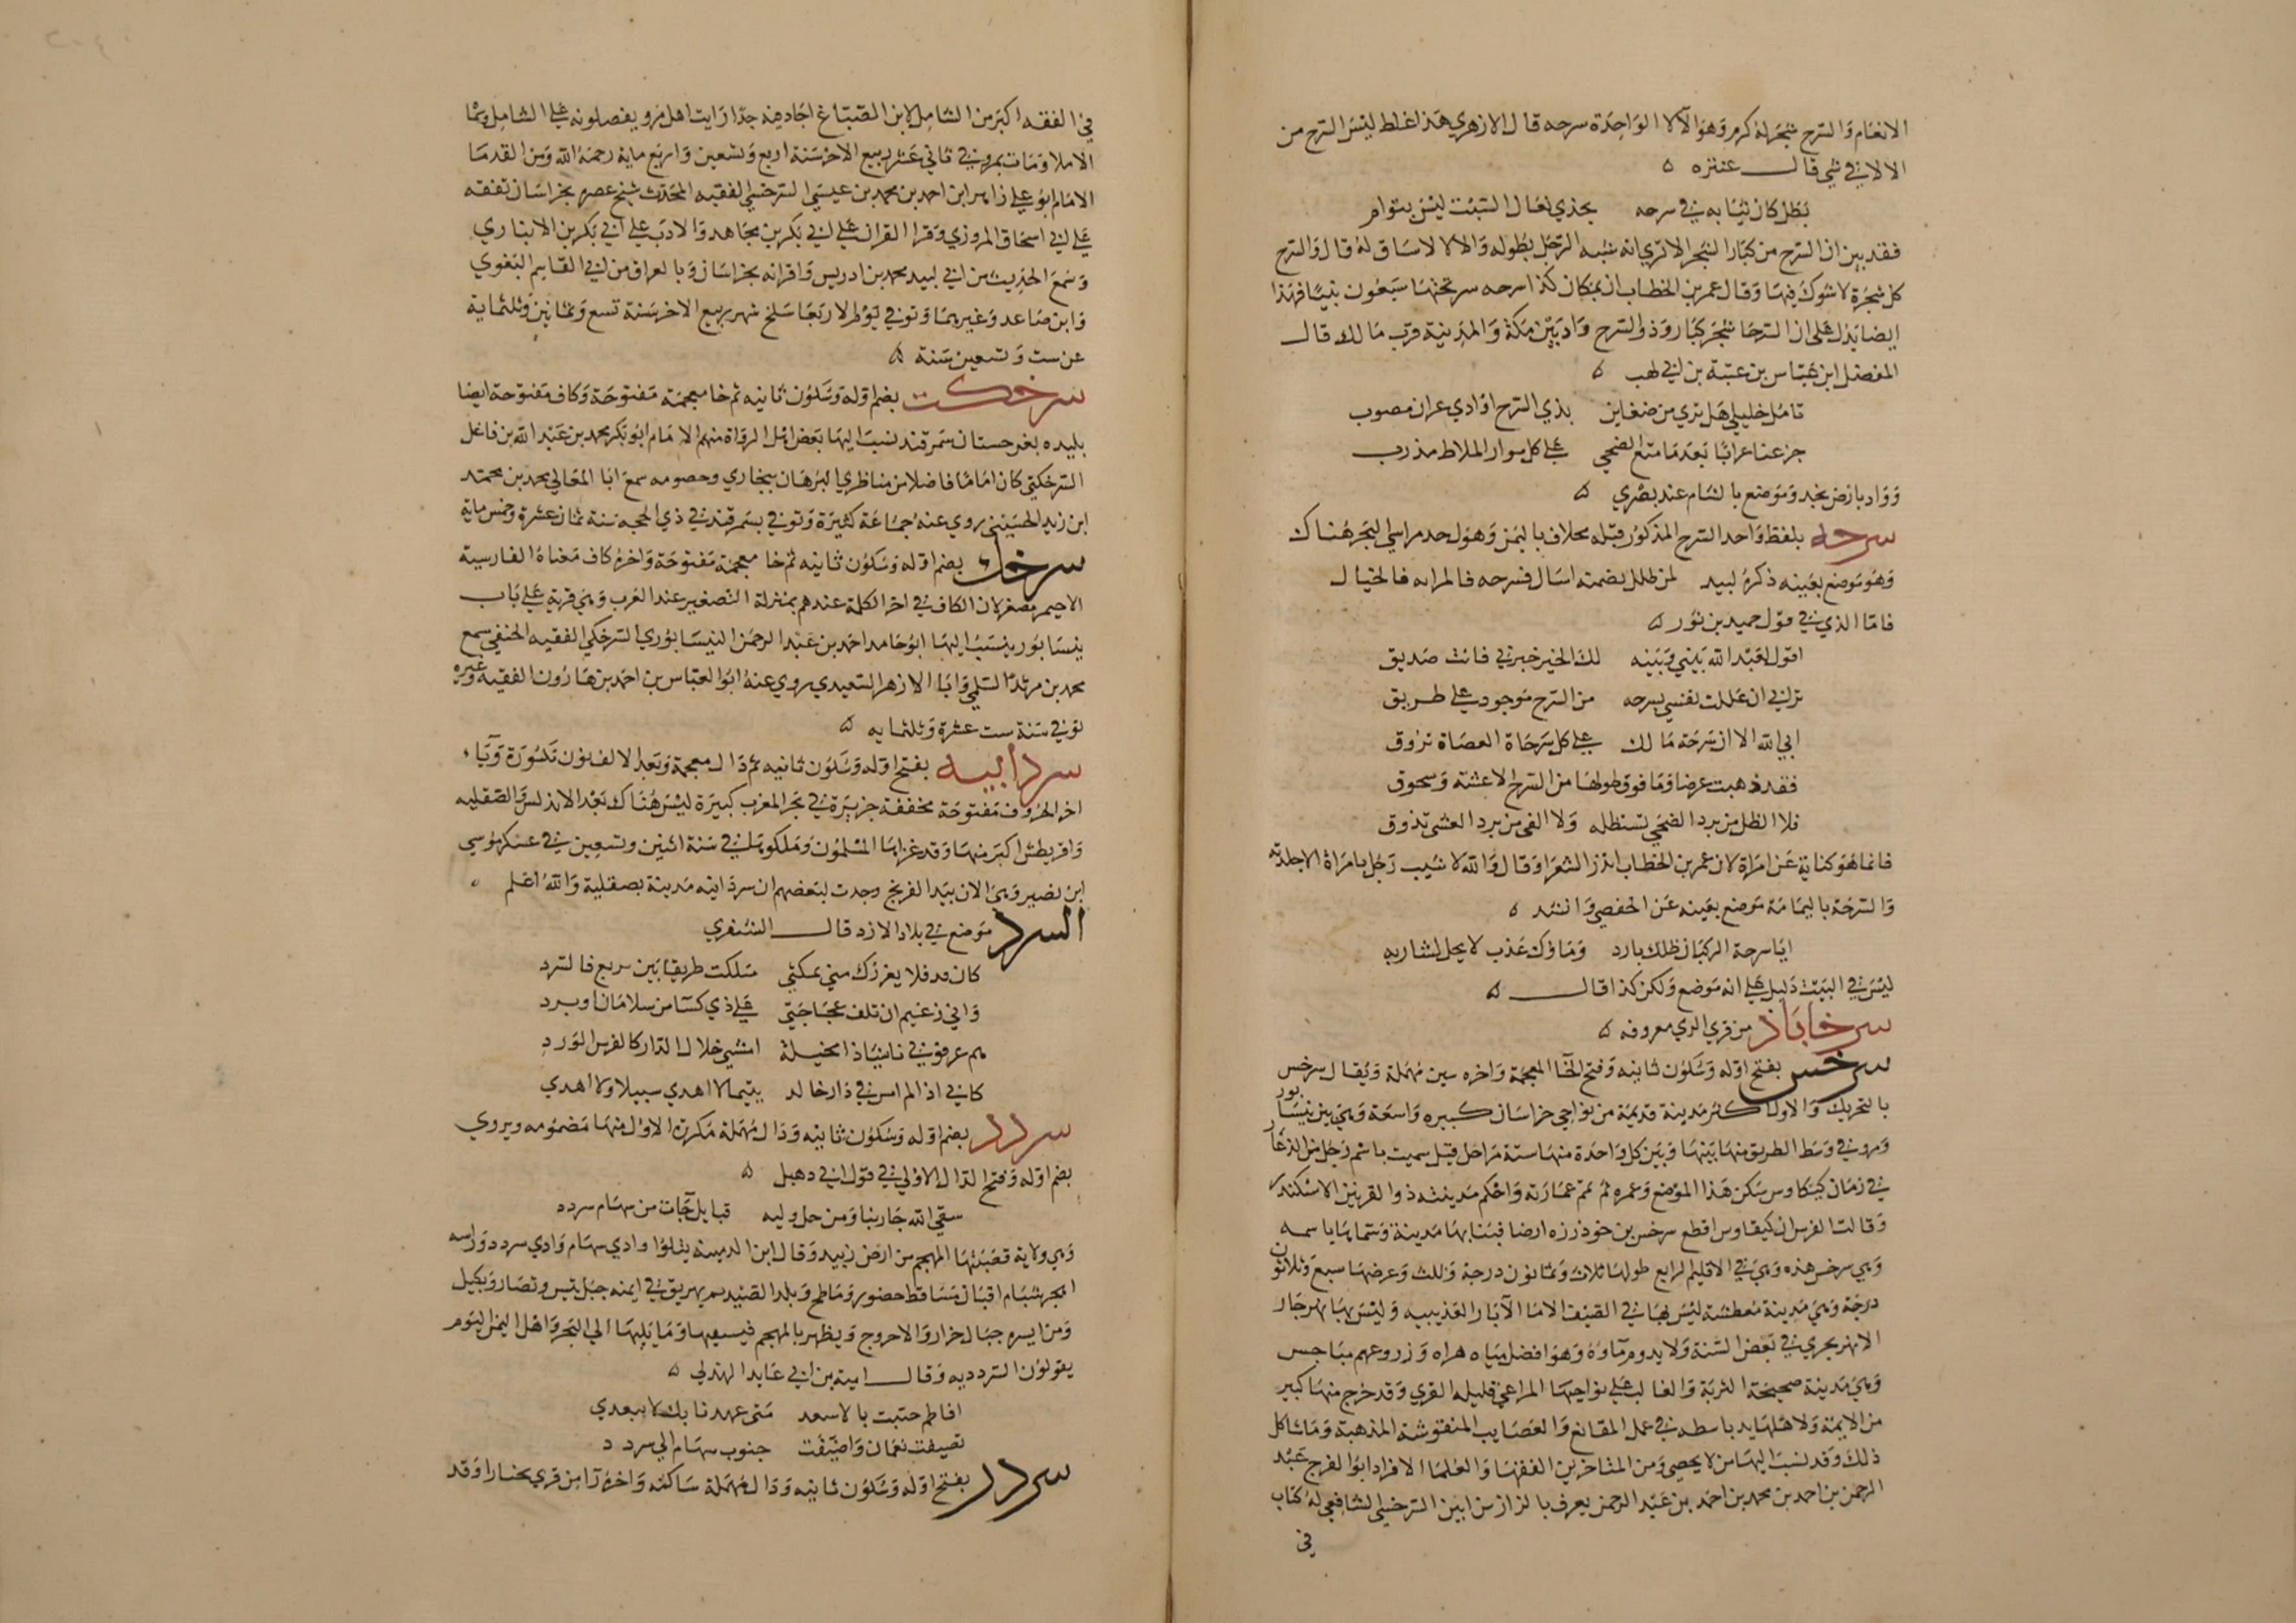 الانعام والسرح شجر له كرم وهو الآلا الواحدة سرحه قال الازهري هذا غلط ليس السرح من
الالا في شي قال عنتره ه
بطل كان ثيابه في سرحه يحذي نعال السبت ليس بتوام
فقد بين ان السرح من كبار الشجر الا تري انه شبه الرجل بطوله والالا لا ساق له قال والسرح
كل شجرة لا شوك فيها وقال عمر بن الخطاب ان بمكان كذا سرحه سر تحتها سبعون نبيا فهذا
ايضا يدل على ان السرحا شجر كبار وذو السرح واد بين مكة والمدينة قرب مالك قال
المفضل ابن عباس بن عتبة بن ابي لهب ه
تامل خليلي هل تري من ضعاين بذي السرح او وادي عران مصوب
جزعنا عرابا بعد ما متع الضحي علي كل موار الملاط مذرب
وواد بارض نجد وموضع بالشام عند بصري ه
سرحه بلفظ واحد السرح المذكور قبله مخلاف باليمن وهو احد مراسي البحر هناك
وهو موضع بعينه ذكره لبيد لمن طلل تضمنه اثال فسرحه فالمرانه فالخيال
فاما الذي في قول حميد بن ثور ه
اقول لعبد الله بيني وبينه لك الخير خبرني فانت صديق
تراني ان عللت نفسي بسرحه من السرح موجود علي طريق
ابي الله الا ان سرحة مالك علي كل سرحاة العضاة تروق
فقد ذهبت عرضا وما فوق طولها من السرح الا عشة وسحوق
فلا الظل من برد الضحي تستظله ولا الفي من برد العشي تذوق
فانما هو كناية عن امراة لان عمر بن الخطاب انذر الشعرا وقال والله لا شبب رجل بامراة الا جلدته
والسرحة باليمامة موضع بعينه عن الحفصي وانشد ه
ايا سرحة الركبان ظلك بارد وماوك عذب لا يحل لشاربه
ليس في البيت دليل علي انه موضع ولكن كذا قال ه
سرخاباذ من قري الري معروفه ه
سرخس بفتح اوله وسكون ثانيه وفتح الخا المعجمة واخره سين مهملة ويقال سرخس
بالتحريك والاول اكثر مدينة قديمة من نواحي خراسان كبيره واسعة وهي بين نيسابور
ومرو في وسط الطريق منها بينها وبين كل واحدة منها ستة مراحل قيل سميت باسم رجل من الذعار
في زمان كيكاوس سكن هذا الموضع وعمره ثم تمم عمارته واحكم مدينته ذو القرنين الاسكندر
وقالت الفرس ان كيقاوس اقطع سرخس بن خوذرزه ارضا فبنا بها مدينة وسماها باسمه
وهي سرخس هذه وهي في الاقليم الرابع طولها ثلاث وثمانون درجة وثلث وعرضها سبع وثلاثون
درجة وهي مدينة معطشة ليس لها في الصيف الا ماا الآبار العذيبيه وليس بها نهر جار
الا نهر يجري في بعض السنة ولا يدوم ماوه وهو افضل مياه هراه وزروعهم مباجس
وهي مدينة صحيحة التربة والغالب علي نواحيها المراعي قليله القري وقد خرج منها كبير
من الايمة ولاهلها يد باسطه في عمل المقانع والعصايب المنقوشة المذهبة وما شاكل
ذلك وقد نسب اليها من لا يحصي ومن المتاخرين الفقها والعلما الافراد ابو الفرج عبد
الرحمن بن احمد بن محمد بن احمد بن عبد الرحمن يعرف بالزاز من ابين السرخسي الشافعي له كتاب
في
في الفقه اكبر من الشامل لابن الصباغ اجاد فيه جدا رايت اهل مرو يفضلونه علي الشامل وسماه
الاملا ومات بمرو في ثاني عشر ربيع الاخر سنة اربع وتسعين واربع ماية رحمه الله ومن القدما
الامام ابو علي زاهر ابن احمد بن محمد بن عيسي السرخسي الفقيه المحدث شيخ عصره بخراسان تفقه
علي ابي اسحاق المروزي وقرا القران علي ابي بكر بن مجاهد والادب علي ابي بكر بن الانباري
وسمع الحديث من ابي لبيد محمد بن ادريس واقرانه بخراسان وبالعراق من ابي القاسم البغوي
وابن صاعد وغيرهما وتوفي يوم الاربعا سلخ شهر ربيع الاخر سنة تسع وثمانين وثلثماية
عن ست وتسعين سنة ه
سرخكت بضم اوله وسكون ثانيه ثم خا معجمة مفتوحة وكاف مفتوحة ايضا
بليده بغرجستان سمرقند نسب اليها بعض اهل الرواة منهم الامام ابو بكر محمد بن عبد الله بن فاعل
السرخكتي كان اماما فاضلا من مناظري البرهان ببخاري وخصومه سمع ابا المعالي محمد بن محمد
ابن زيد الحسيني روي عنه جماعة كثيرة وتوفي بسمرقند في ذي الحجه سنة ثمان عشرة وخمس ماية
سرخك بضم اوله وسكون ثانيه ثم خا معجمة مفتوحة واخره كاف معناه الفارسية
الاحيمر مصغر لان الكاف في اخر الكلمة عندهم بمنزلة التصغير عند العرب وهي قرية علي باب
نيسابور ينسب اليها ابو حامد احمد بن عبد الرحمن النيسابوري السرخكي الفقيه الحنفي سمع
محمد بن مرثد السلمي وابا الازهر السعيدي روي عنه ابو العباس بن احمد بن هارون الفقيه وغيره
توفي سنة ست عشرة وثلثمايه ه
سردانيه بفتح اوله وسكون ثانيه ثم دال معجمة وبعد الالف نون مكسورة ويآء
اخر الحروف مفتوحة مخففة جزيرة في بحر المغرب كبيرة ليس هناك بعد الاندلس والصقليه
واقريطش اكبر منها وقد غزاها المسلمون وملكوها في سنة اثنين وتسعين في عسكر موسي
ابن نصير وهي الان بيد الفرنج وجدت لبعضهم ان سردانيه مدينة بصقلية والله اعلم ه
السرد موضع في بلاد الازد قال الشنفري
كان قد فلا يغررك مني تمكثي سلكت طريقا بين يربع فالسرد
واني زعيم ان تلف عجاجتي علي ذي كسآ من سلامان او برد
هم عرفوني ناشيا ذا مخيلة امشي خلال الدار كالفرس الورد
كاني اذا لم امس في دار خالد بتيما لا اهدي سبيلا ولا اهدي
سردد بضم اوله وسكون ثانيه ودال مهملة مكررة الاول منها مضمومه ويروي
بضم اوله وفتح الدال الاولي في قول ابي دهبل ه
سقي الله جارينا ومن حل وليه قبايل جآت من سهام سردد
وهي ولاية قصبتها المهجم من ارض زبيد وقال ابن الدمينه يتلوا وادي سهام وادي سردد وراسه
اهجر شبام اقيان مساقط حضور وماطح وبلد الصيد يهريق في ايمنه جبل تيس ونضار وبكيل
ومن ايسره جبال حراز والاحروج ويظهر بالمهجم فيسقيها وما يليها الي البحر واهل اليمن اليوم
يقولون السردديه وقال امية بن ابي عايد الهذلي ه
افاطم حييت بالاسعد متى عهدنا بك لا تبعدي
تصيفت نعمان واصيفت جنوب سهام الي سردد
سردر بفتح اوله وسكون ثانيه ودال مهملة ساكنه واخره را من قري بخارا وقد